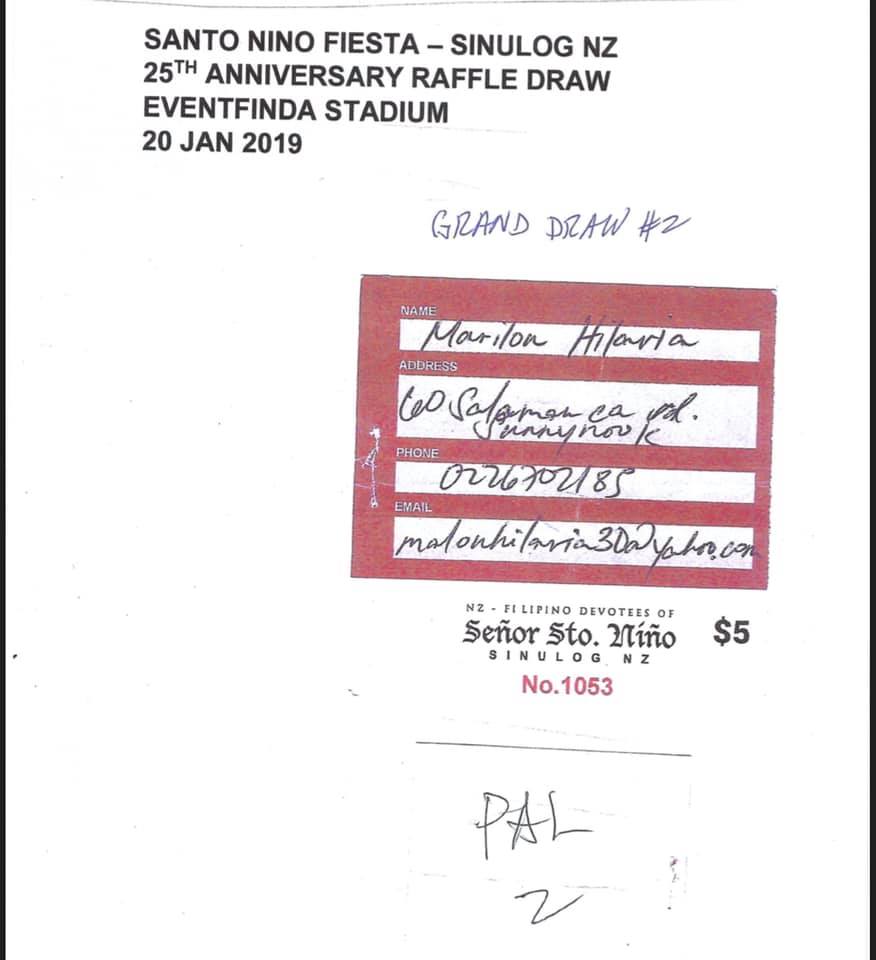 SANTO NINO FIESTA – SINULOG NZ
25TH ANNIVERSARY RAFFLE DRAW
EVENTFINDA STADIUM
20 JAN 2019
GRAND DRAW #2
NAME
Marilon Hilavia
ADDRESS
60 Salamanca rd.
Sunnynook
PHONE
0226702185
EMAIL
malonhilavia30@yahoo.com
NZ - FILIPINO DEVOTEES OF
Señor Sto. Niño
$5
SINULOG NZ
No.1053
PAL
2